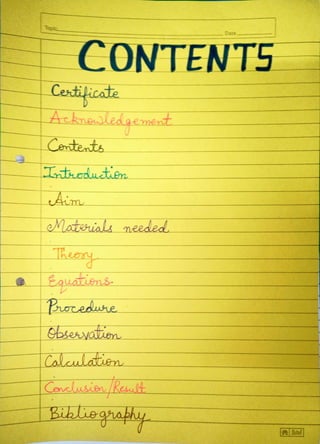 Topic Date
CONTENTS
Certificate
Acknowledgement
Contents
Introduction
Aim
Materials needed
Theory
Equations
Procedure
Observation
Calculation
Conclusion/Result
Bibliography